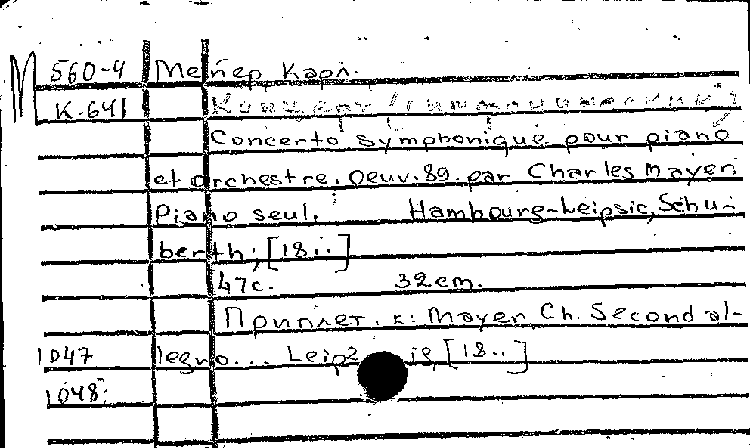 М 560-4 Мейер Карл.
К-641 Концерт /симфонический/
Concerto symphonique pour piano
et orchestre, Oeuv. 89. par Charles Mayer.
Piano seul. Hambourg-Leipsic, Schu-
berth; [18..]
47с. 32cm.
Приплет. к: Mayer Ch. Second al-
1047 legro... Leipzig, [18..]
1048.